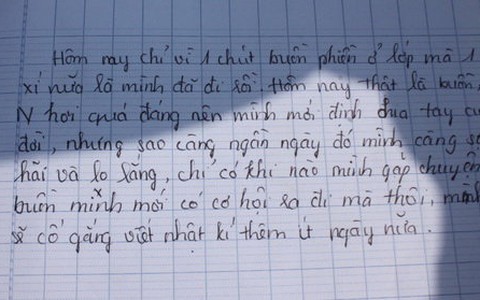 Hôm nay chỉ vì 1 chút buồn phiền ở lớp mà 1
xí nữa là mình đã đi rồi. Hôm nay thật là buồn,
N hơi quá đáng nên mình mới định chia tay cu
đời, nhưng sao càng ngần ngày đó mình càng s
hãi và lo lắng, chỉ có khi nào mình gặp chuyện
buồn mình mới có cơ hội ra đi mà thôi, mình
sẽ cố gắng viết nhật kí thêm ít ngày nữa.